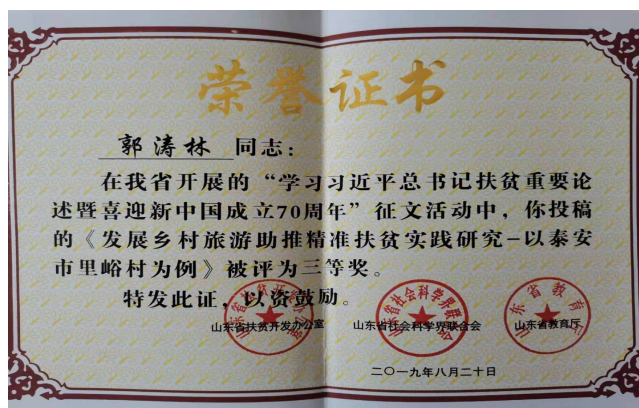 荣誉证书
郭涛林 同志：
在我省开展的“学习习近平总书记扶贫重要论
述暨喜迎新中国成立70周年”征文活动中，你投稿
的《发展乡村旅游助推精准扶贫实践研究-以泰安
市里峪村为例》被评为三等奖。
特发此证，以资鼓励。
山东省扶贫开发办公室 山东省社会科学界联合会 山东省教育厅
山东省扶贫开发办公室
山东省社会科学界联合会
山东省教育厅
二〇一九年八月二十日